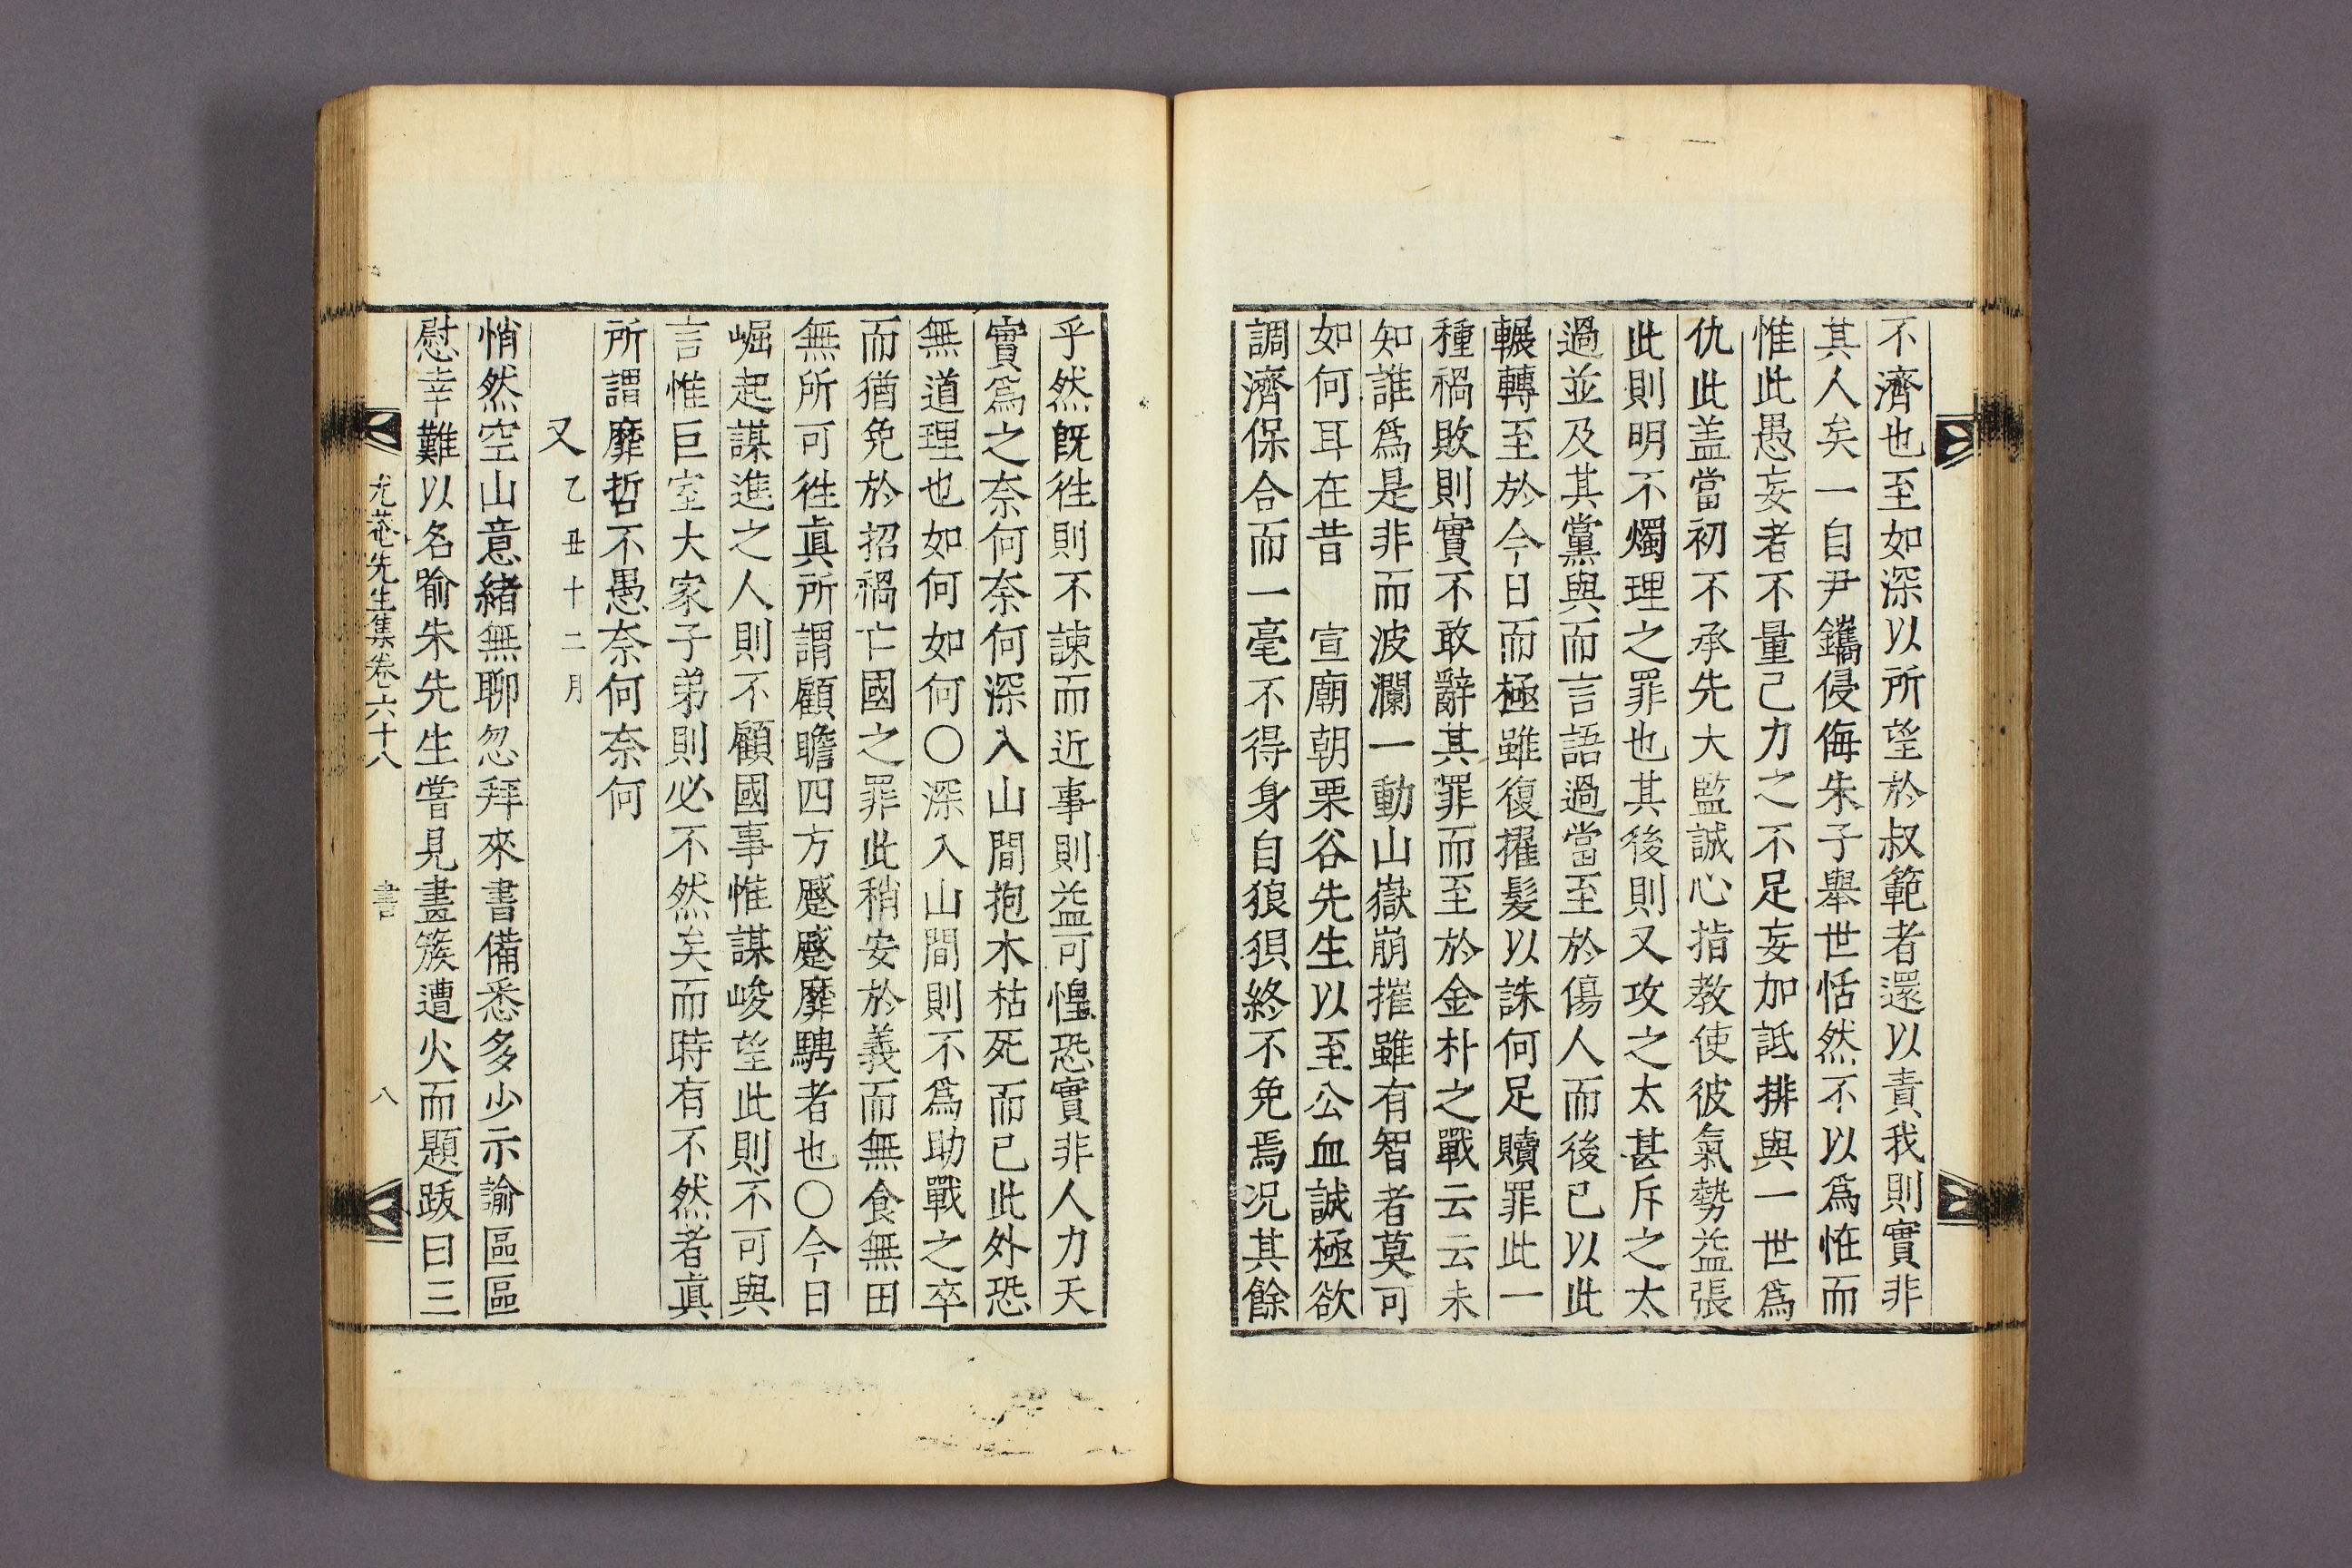 不濟也至如深以所望於叔範者還以責我則實非
其人矣一自尹鑴侵侮朱子舉世恬然不以爲恠而
惟此愚妄者不量己力之不足妄加詆排與一世爲
仇此盖當初不承先大監誠心指教使彼氣勢益張
此則明不燭理之罪也其後則又攻之太甚斥之太
過並及其黨與而言語過當至於傷人而後已以此
輾轉至於今日而極雖復擢髮以誅何足贖罪此一
種禍敗則實不敢辭其罪而至於金朴之戰云云未
知誰爲是非而波瀾一動山嶽崩摧雖有智者莫可
如何耳在昔　宣廟朝栗谷先生以至公血誠極欲
調濟保合而一毫不得身自狼狽終不免焉况其餘
乎然旣徃則不諫而近事則益可惶恐實非人力天
實爲之奈何奈何深入山間抱木枯死而已此外恐
無道理也如何如何○深入山間則不爲助戰之卒
而猶免於招禍亡國之罪此稍安於義而無食無田
無所可徃眞所謂顧瞻四方蹙蹙靡騁者也○今日
崛起謀進之人則不顧國事惟謀峻望此則不可與
言惟巨室大家子弟則必不然矣而時有不然者眞
所謂靡哲不愚奈何奈何
又 乙丑十二月
悄然空山意緖無聊忽拜來書備悉多少示諭區區
慰幸難以名喩朱先生嘗見畫簇遭火而題跋曰三
尤菴先生集卷六十八　書　八